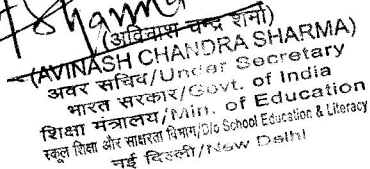 (अविनाश चन्द्र शर्मा)
(AVINASH CHANDRA SHARMA)
अवर सचिव/Under Secretary
भारत सरकार/Govt. of India
शिक्षा मंत्रालय/Min. of Education
स्कूल शिक्षा और साक्षरता विभाग/D/o School Education & Literacy
नई दिल्ली/New Delhi